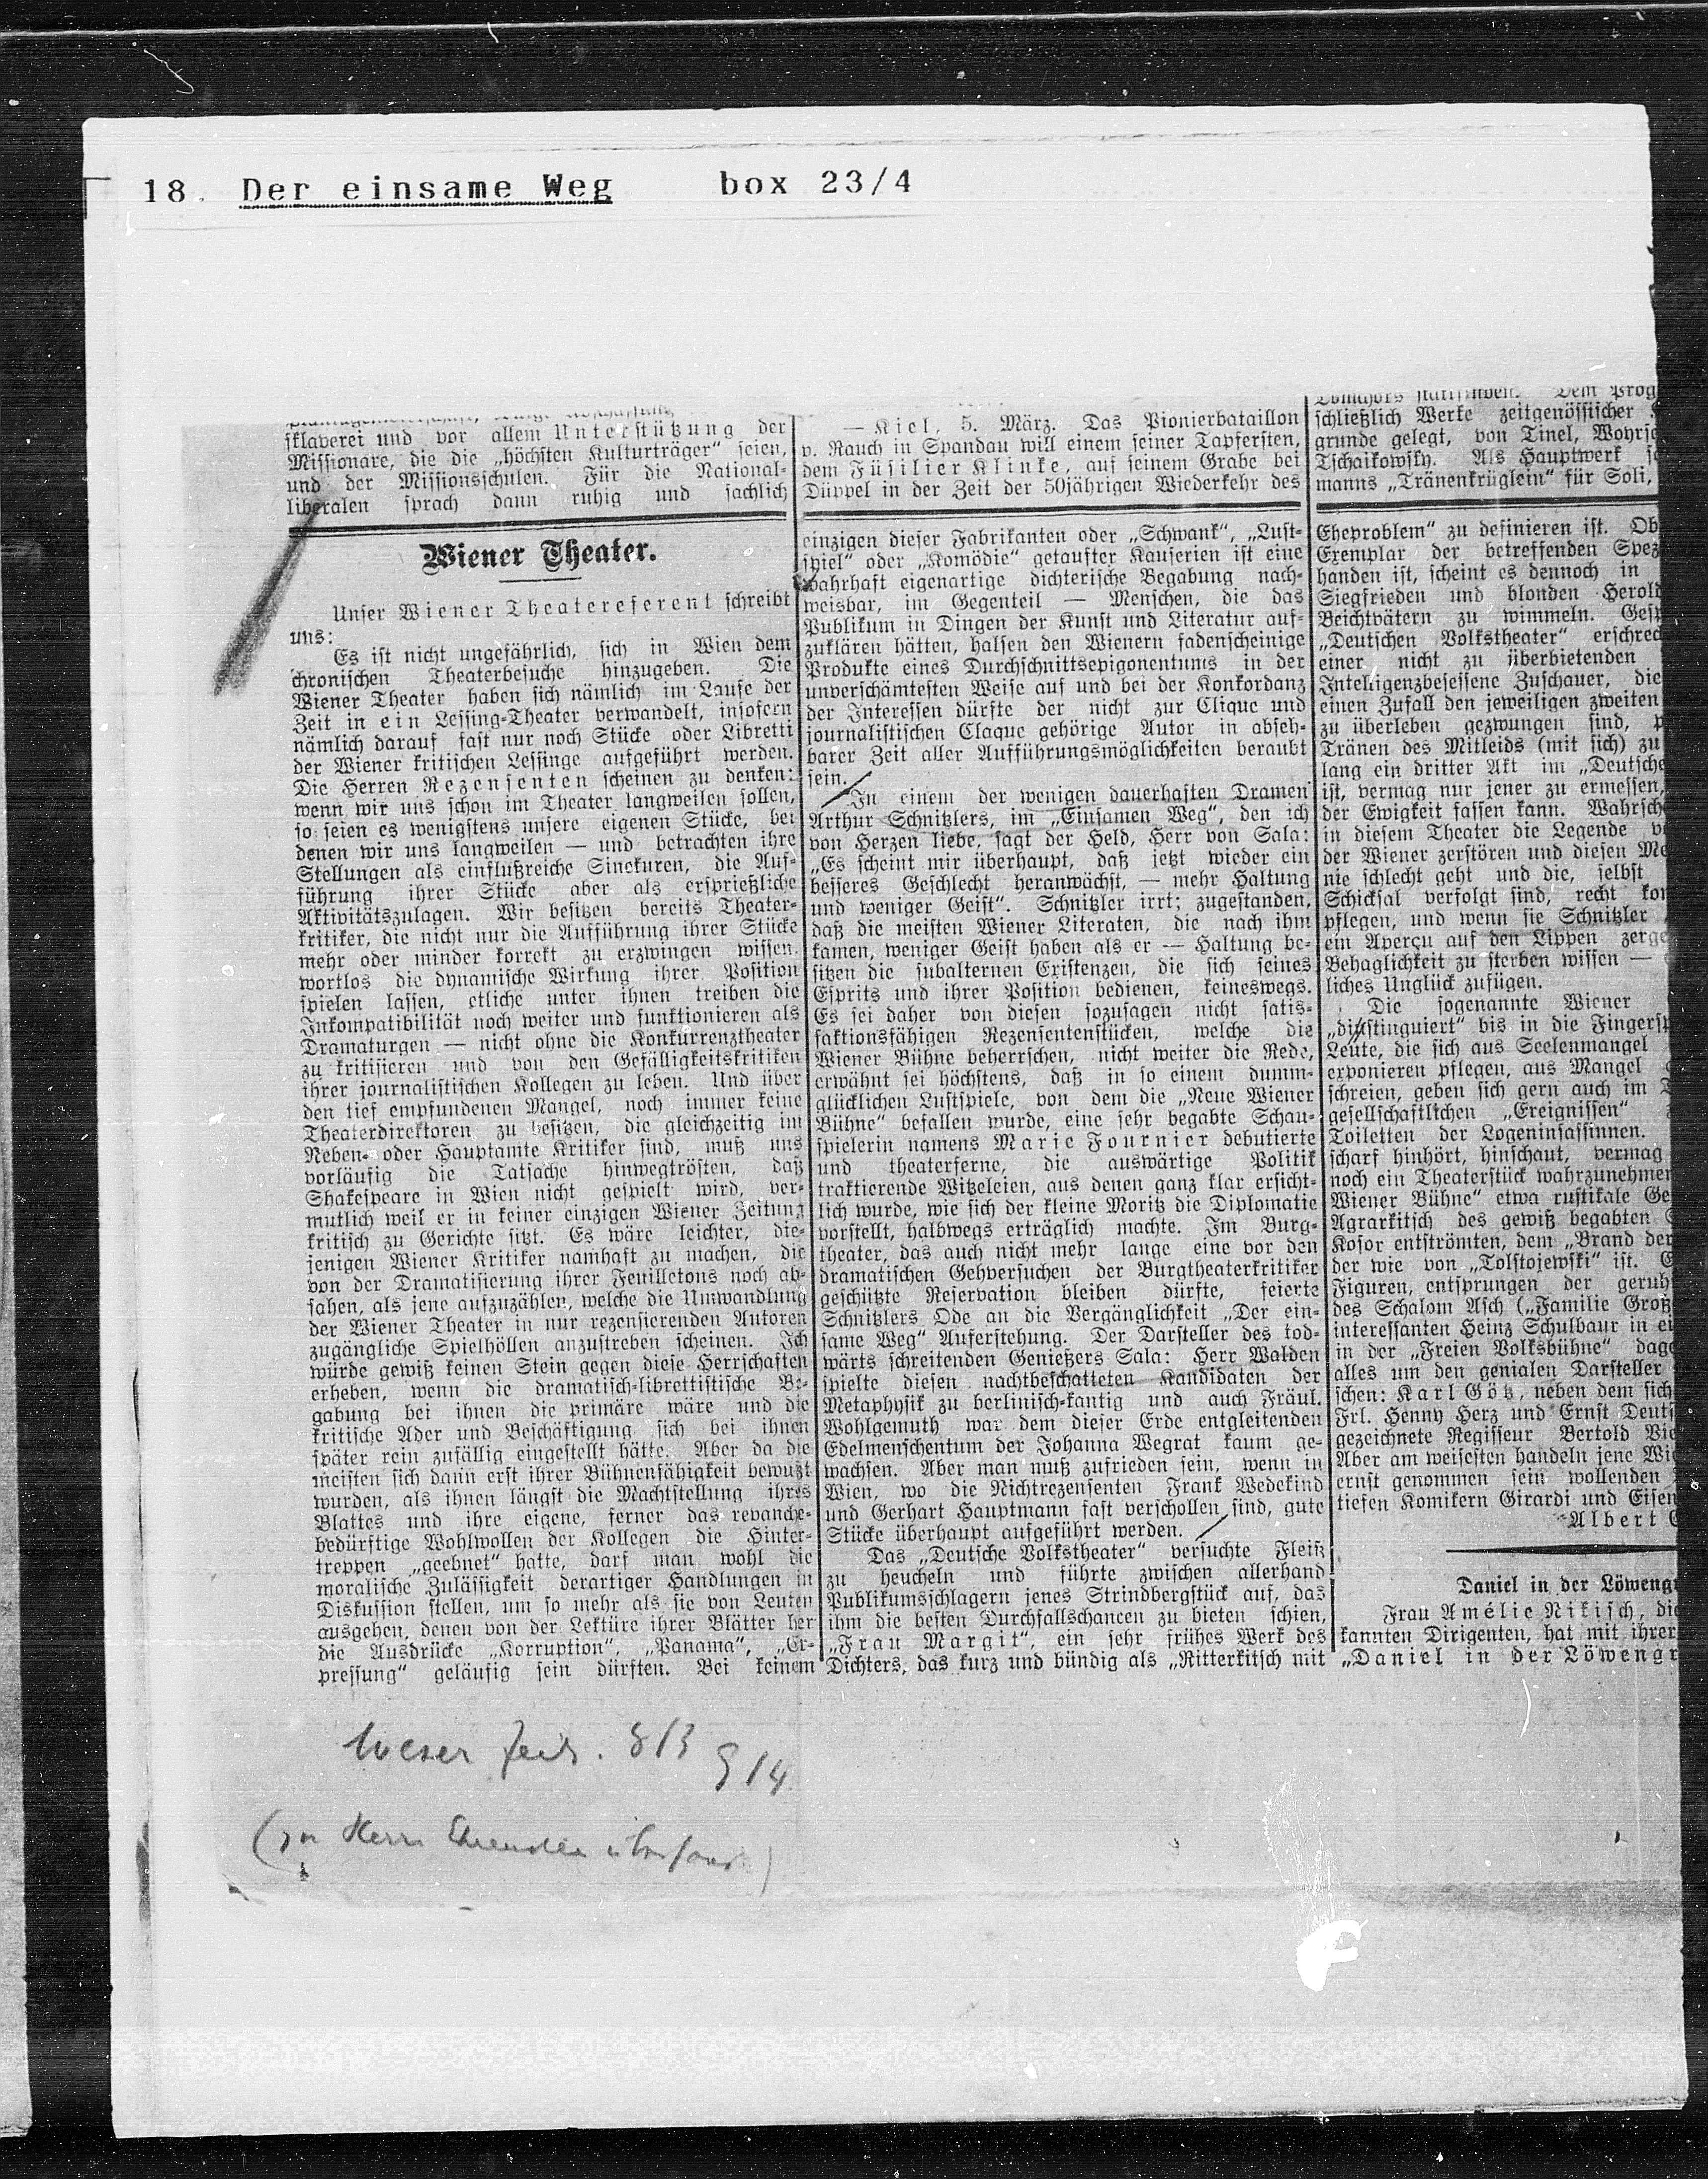 18. Der einsame Weg box 23/4
sklaverei und vor allem Unterstützung der
Missionare, die die „höchsten Kulturträger“ seien,
und der Missionsschulen. Für die National-
liberalen sprach dann ruhig und sachlich
Wiener Theater.
Unser Wiener Theatereferent schreibt
uns:
Es ist nicht ungefährlich, sich in Wien dem
chronischen Theaterbesuche hinzugeben. Die
Wiener Theater haben sich nämlich im Laufe der
Zeit in ein Lessing-Theater verwandelt, insofern
nämlich darauf fast nur noch Stücke oder Libretti
der Wiener kritischen Lessinge aufgeführt werden.
Die Herren Rezensenten scheinen zu denken:
wenn wir uns schon im Theater langweilen sollen,
so seien es wenigstens unsere eigenen Stücke, bei
denen wir uns langweilen — und betrachten ihre
Stellungen als einflußreiche Sinekuren, die Auf-
führung ihrer Stücke aber als ersprießliche
Aktivitätszulagen. Wir besitzen bereits Theater-
kritiker, die nicht nur die Aufführung ihrer Stücke
mehr oder minder korrekt zu erzwingen wissen,
wortlos die dynamische Wirkung ihrer Position
spielen lassen, etliche unter ihnen treiben die
Inkompatibilität noch weiter und funktionieren als
Dramaturgen — nicht ohne die Konkurrenztheater
zu kritisieren und von den Gefälligkeitskritiken
ihrer journalistischen Kollegen zu leben. Und über
den tief empfundenen Mangel, noch immer keine
Theaterdirektoren zu besitzen, die gleichzeitig im
Neben- oder Hauptamte Kritiker sind, muß uns
vorläufig die Tatsache hinwegtrösten, daß
Shakespeare in Wien nicht gespielt wird, ver-
mutlich weil er in keiner einzigen Wiener Zeitung
kritisch zu Gerichte sitzt. Es wäre leichter, die-
jenigen Wiener Kritiker namhaft zu machen, die
von der Dramatisierung ihrer Feuilletons noch ab-
sahen, als jene aufzuzählen, welche die Umwandlung
der Wiener Theater in nur rezensierenden Autoren
zugängliche Spielhöllen anzustreben scheinen. Ich
würde gewiß keinen Stein gegen diese Herrschaften
erheben, wenn die dramatisch-librettistische Be-
gabung bei ihnen die primäre wäre und die
kritische Ader und Beschäftigung sich bei ihnen
später rein zufällig eingestellt hätte. Aber da die
meisten sich dann erst ihrer Bühnenfähigkeit bewußt
wurden, als ihnen längst die Machtstellung ihres
Blattes und ihre eigene, ferner das revanche-
bedürftige Wohlwollen der Kollegen die Hinter-
treppen „geebnet“ hatte, darf man wohl die
moralische Zulässigkeit derartiger Handlungen in
Diskussion stellen, um so mehr als sie von Leuten
ausgehen, denen von der Lektüre ihrer Blätter her
die Ausdrücke „Korruption“, „Panama“, „Er-
pressung“ geläufig sein dürften. Bei keinem
— Kiel, 5. März. Das Pionierbataillon
v. Rauch in Spandau will einem seiner Tapfersten,
dem Füsilier Klinke, auf seinem Grabe bei
Düppel in der Zeit der 50jährigen Wiederkehr des
einzigen dieser Fabrikanten oder „Schwank“, „Lust-
spiel“ oder „Komödie“ getaufter Kauserien ist eine
wahrhaft eigenartige dichterische Begabung nach-
weisbar, im Gegenteil — Menschen, die das
Publikum in Dingen der Kunst und Literatur auf-
zuklären hätten, halsen den Wienern fadenscheinige
Produkte eines Durchschnittsepigonentums in der
unverschämtesten Weise auf und bei der Konkordanz
der Interessen dürfte der nicht zur Clique und
journalistischen Claque gehörige Autor in abseh-
barer Zeit aller Aufführungsmöglichkeiten beraubt
sein.
In einem der wenigen dauerhaften Dramen
Arthur Schnitzlers, im „Einsamen Weg“, den ich
von Herzen liebe, sagt der Held, Herr von Sala:
„Es scheint mir überhaupt, daß jetzt wieder ein
besseres Geschlecht heranwächst, — mehr Haltung
und weniger Geist“. Schnitzler irrt; zugestanden,
daß die meisten Wiener Literaten, die nach ihm
kamen, weniger Geist haben als er — Haltung be-
sitzen die subalternen Existenzen, die sich seines
Esprits und ihrer Position bedienen, keineswegs.
Es sei daher von diesen sozusagen nicht satis-
faktionsfähigen Rezensentenstücken, welche die
Wiener Bühne beherrschen, nicht weiter die Rede,
erwähnt sei höchstens, daß in so einem dumm-
glücklichen Lustspiele, von dem die „Neue Wiener
Bühne“ befallen wurde, eine sehr begabte Schau-
spielerin namens Marie Fournier debutierte
und theaterferne, die auswärtige Politik
traktierende Witzeleien, aus denen ganz klar ersicht-
lich wurde, wie sich der kleine Moritz die Diplomatie
vorstellt, halbwegs erträglich machte. Im Burg-
theater, das auch nicht mehr lange eine vor den
dramatischen Gehversuchen der Burgtheaterkritiker
geschützte Reservation bleiben dürfte, feierte
Schnitzlers Ode an die Vergänglichkeit „Der ein-
same Weg“ Auferstehung. Der Darsteller des tod-
wärts schreitenden Genießers Sala: Herr Walden
spielte diesen nachtbeschatteten Kandidaten der
Metaphysik zu berlinisch-kantig und auch Fräul.
Wohlgemuth war dem dieser Erde entgleitenden
Edelmenschentum der Johanna Wegrat kaum ge-
wachsen. Aber man muß zufrieden sein, wenn in
Wien, wo die Nichtrezensenten Frank Wedekind
und Gerhart Hauptmann fast verschollen sind, gute
Stücke überhaupt aufgeführt werden.
Das „Deutsche Volkstheater“ versuchte Fleiß
zu heucheln und führte zwischen allerhand
Publikumsschlagern jenes Strindbergstück auf, das
ihm die besten Durchfallschancen zu bieten schien,
„Frau Margit“, ein sehr frühes Werk des
Dichters, das kurz und bündig als „Ritterkitsch mit
schließlich Werke zeitgenössischer
grunde gelegt, von Tinel, Wohrsc
Tschaikowsky. Als Hauptwerk
manns „Tränenkrüglein“ für Soli,
Eheproblem“ zu definieren ist. Ob
Exemplar der betreffenden Spez
handen ist, scheint es dennoch in
Siegfrieden und blonden Herold
Beichtvätern zu wimmeln. Gesp
„Deutschen Volkstheater“ erschrec
einer nicht zu überbietenden
Intelligenzbesessene Zuschauer, die
einen Zufall den jeweiligen zweiten
zu überleben gezwungen sind,
Tränen des Mitleids (mit sich) zu
lang ein dritter Akt im „Deutsche
ist, vermag nur jener zu ermessen,
der Ewigkeit fassen kann. Wahrsch
in diesem Theater die Legende
der Wiener zerstören und diesen Me
nie schlecht geht und die, selbst
Schicksal verfolgt sind, recht kom
pflegen, und wenn sie Schnitzler
ein Aperçu auf den Lippen zerge
Behaglichkeit zu sterben wissen —
liches Unglück zufügen.
Die sogenannte Wiener
„distinguiert“ bis in die Fingersp
Leute, die sich aus Seelenmangel
exponieren pflegen, aus Mangel
schreien, geben sich gern auch im
gesellschaftlichen „Ereignissen“
Toiletten der Logeninsassinnen.
scharf hinhört, hinschaut, vermag
noch ein Theaterstück wahrzunehmen
Wiener Bühne“ etwa rustikale Ge
Agrarkitsch des gewiß begabten
Kosor entströmten, dem „Brand der
der wie von „Tolstojewski“ ist.
Figuren, entsprungen der geruh
des Schalom Asch („Familie Groß
interessanten Heinz Schulbaur in ei
in der „Freien Volksbühne“ dage
alles um den genialen Darsteller
schen: Karl Götz, neben dem sich
Frl. Henny Herz und Ernst Deuts
gezeichnete Regisseur Bertold Vie
Aber am weisesten handeln jene Wie
ernst genommen sein wollenden
tiefen Komikern Girardi und Eisen
Albert
Daniel in der Löwengr
Frau Amélie Nikisch, die
kannten Dirigenten, hat mit ihrer
„Daniel in der Löwengr
Weser Zeit. 8/3 914
Herrn